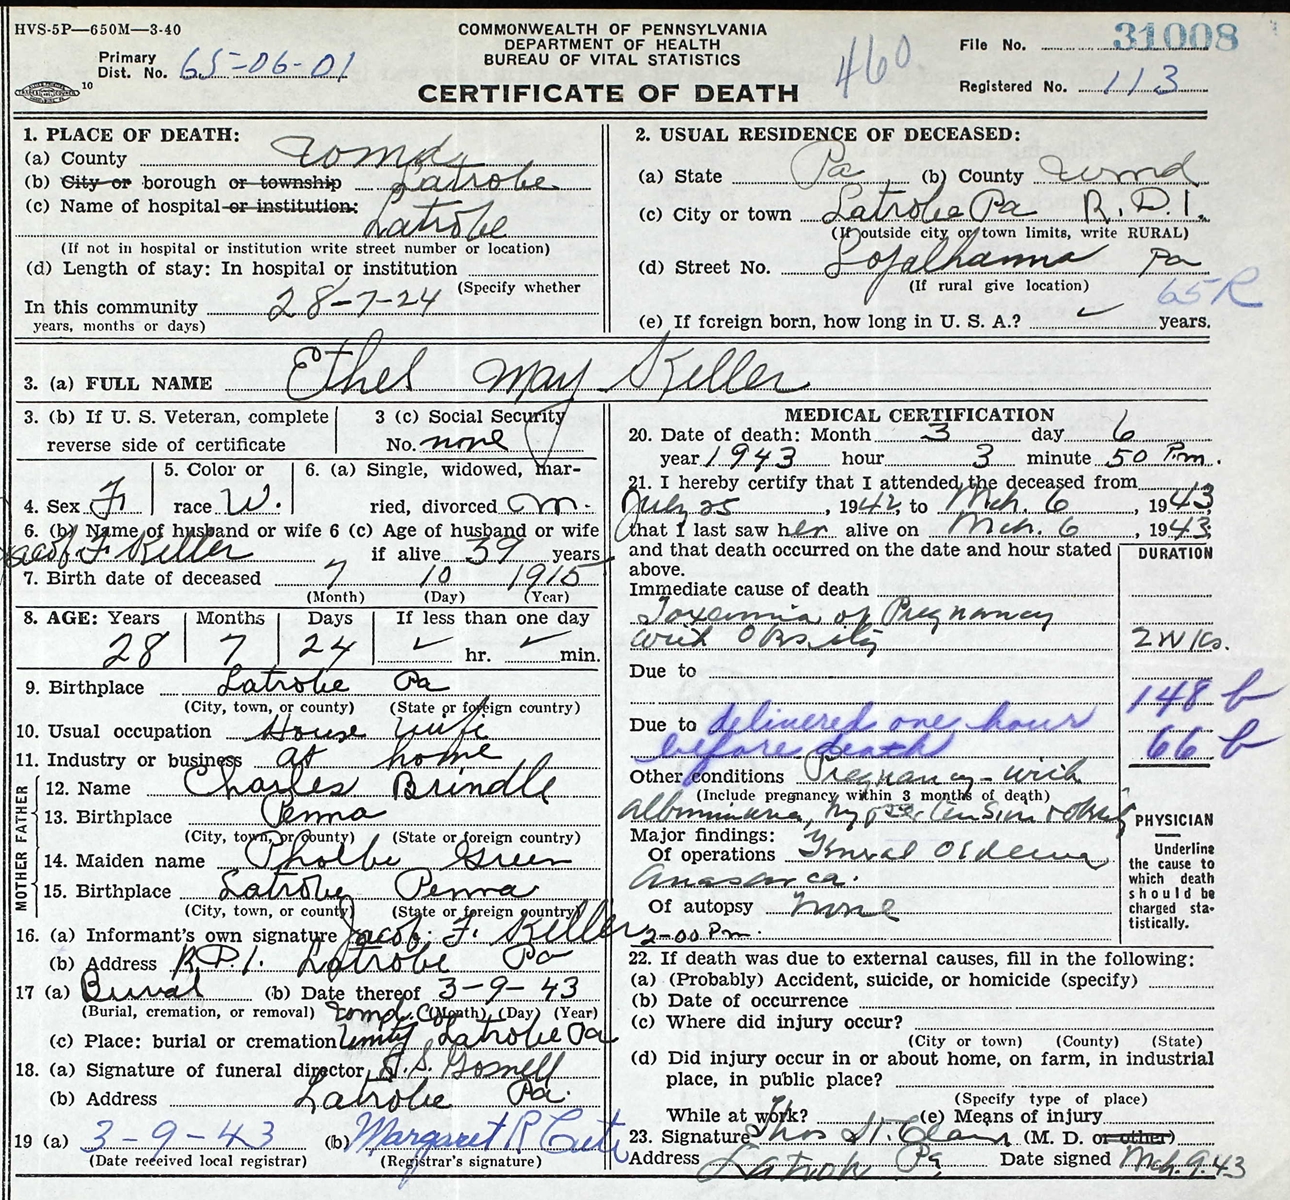 HVS-5P—650M—3-40
COMMONWEALTH OF PENNSYLVANIA
DEPARTMENT OF HEALTH
BUREAU OF VITAL STATISTICS
CERTIFICATE OF DEATH
Primary
Dist. No. 65-06-01
10
460
File No. 31008
Registered No. 113
1. PLACE OF DEATH:
(a) County Wmd.
(b) City or borough or township Latrobe
(c) Name of hospital or institution:
Latrobe
(If not in hospital or institution write street number or location)
(d) Length of stay: In hospital or institution
(Specify whether
In this community 28-7-24
years, months or days)
2. USUAL RESIDENCE OF DECEASED:
(a) State Pa (b) County Wmd
(c) City or town Latrobe Pa R.D.1.
(If outside city or town limits, write RURAL)
(d) Street No. Loyalhanna Pa
(If rural give location)
65R
(e) If foreign born, how long in U. S. A.? ✓ years.
3. (a) FULL NAME Ethel May Keller
3. (b) If U. S. Veteran, complete
reverse side of certificate
3 (c) Social Security
No. none
4. Sex F.
5. Color or
race W.
6. (a) Single, widowed, mar-
ried, divorced m.
6. (b) Name of husband or wife
Jacob F. Keller
6 (c) Age of husband or wife
if alive 39 years
7. Birth date of deceased 7 10 1915
(Month) (Day) (Year)
8. AGE: Years Months Days If less than one day
28 7 24 ✓ hr. ✓ min.
9. Birthplace Latrobe Pa
(City, town, or county) (State or foreign country)
10. Usual occupation House Wife
11. Industry or business at home
FATHER
12. Name Charles Brindle
13. Birthplace Penna
(City, town, or county) (State or foreign country)
MOTHER
14. Maiden name Pholbe Green
15. Birthplace Latrobe Penna
(City, town, or county) (State or foreign country)
16. (a) Informant's own signature Jacob F. Keller
(b) Address R.D.1. Latrobe Pa
17 (a) Burial (b) Date thereof 3-9-43
(Burial, cremation, or removal) (Month) (Day) (Year)
Wmd. Co.
(c) Place: burial or cremation Unity Latrobe Pa
18. (a) Signature of funeral director
(b) Address Latrobe Pa.
19 (a) 3-9-43 (b) Margaret R
(Date received local registrar) (Registrar's signature)
MEDICAL CERTIFICATION
20. Date of death: Month 3 day 6
year 1943 hour 3 minute 50 P.m.
21. I hereby certify that I attended the deceased from
July 25, 1942, to Mch. 6, 1943
that I last saw her alive on Mch. 6, 1943
and that death occurred on the date and hour stated
above.
DURATION
Immediate cause of death
Toxemia of Pregnancy
with Obesity 2 Wks.
Due to
148 b
Due to delivered one hour
before death 66 b
Other conditions Pregnancy - with
(Include pregnancy within 3 months of death)
albuminuria, hypertension & obesity
Major findings:
Of operations General Oedema
Anasarca.
Of autopsy None
2-00 Pm.
PHYSICIAN
Underline
the cause to
which death
should be
charged sta-
tistically.
22. If death was due to external causes, fill in the following:
(a) (Probably) Accident, suicide, or homicide (specify)
(b) Date of occurrence
(c) Where did injury occur?
(City or town) (County) (State)
(d) Did injury occur in or about home, on farm, in industrial
place, in public place?
(Specify type of place)
While at work? (e) Means of injury
23. Signature Thos St. Clair (M. D. or other)
Address Latrobe Pa Date signed Mch. 9. 43